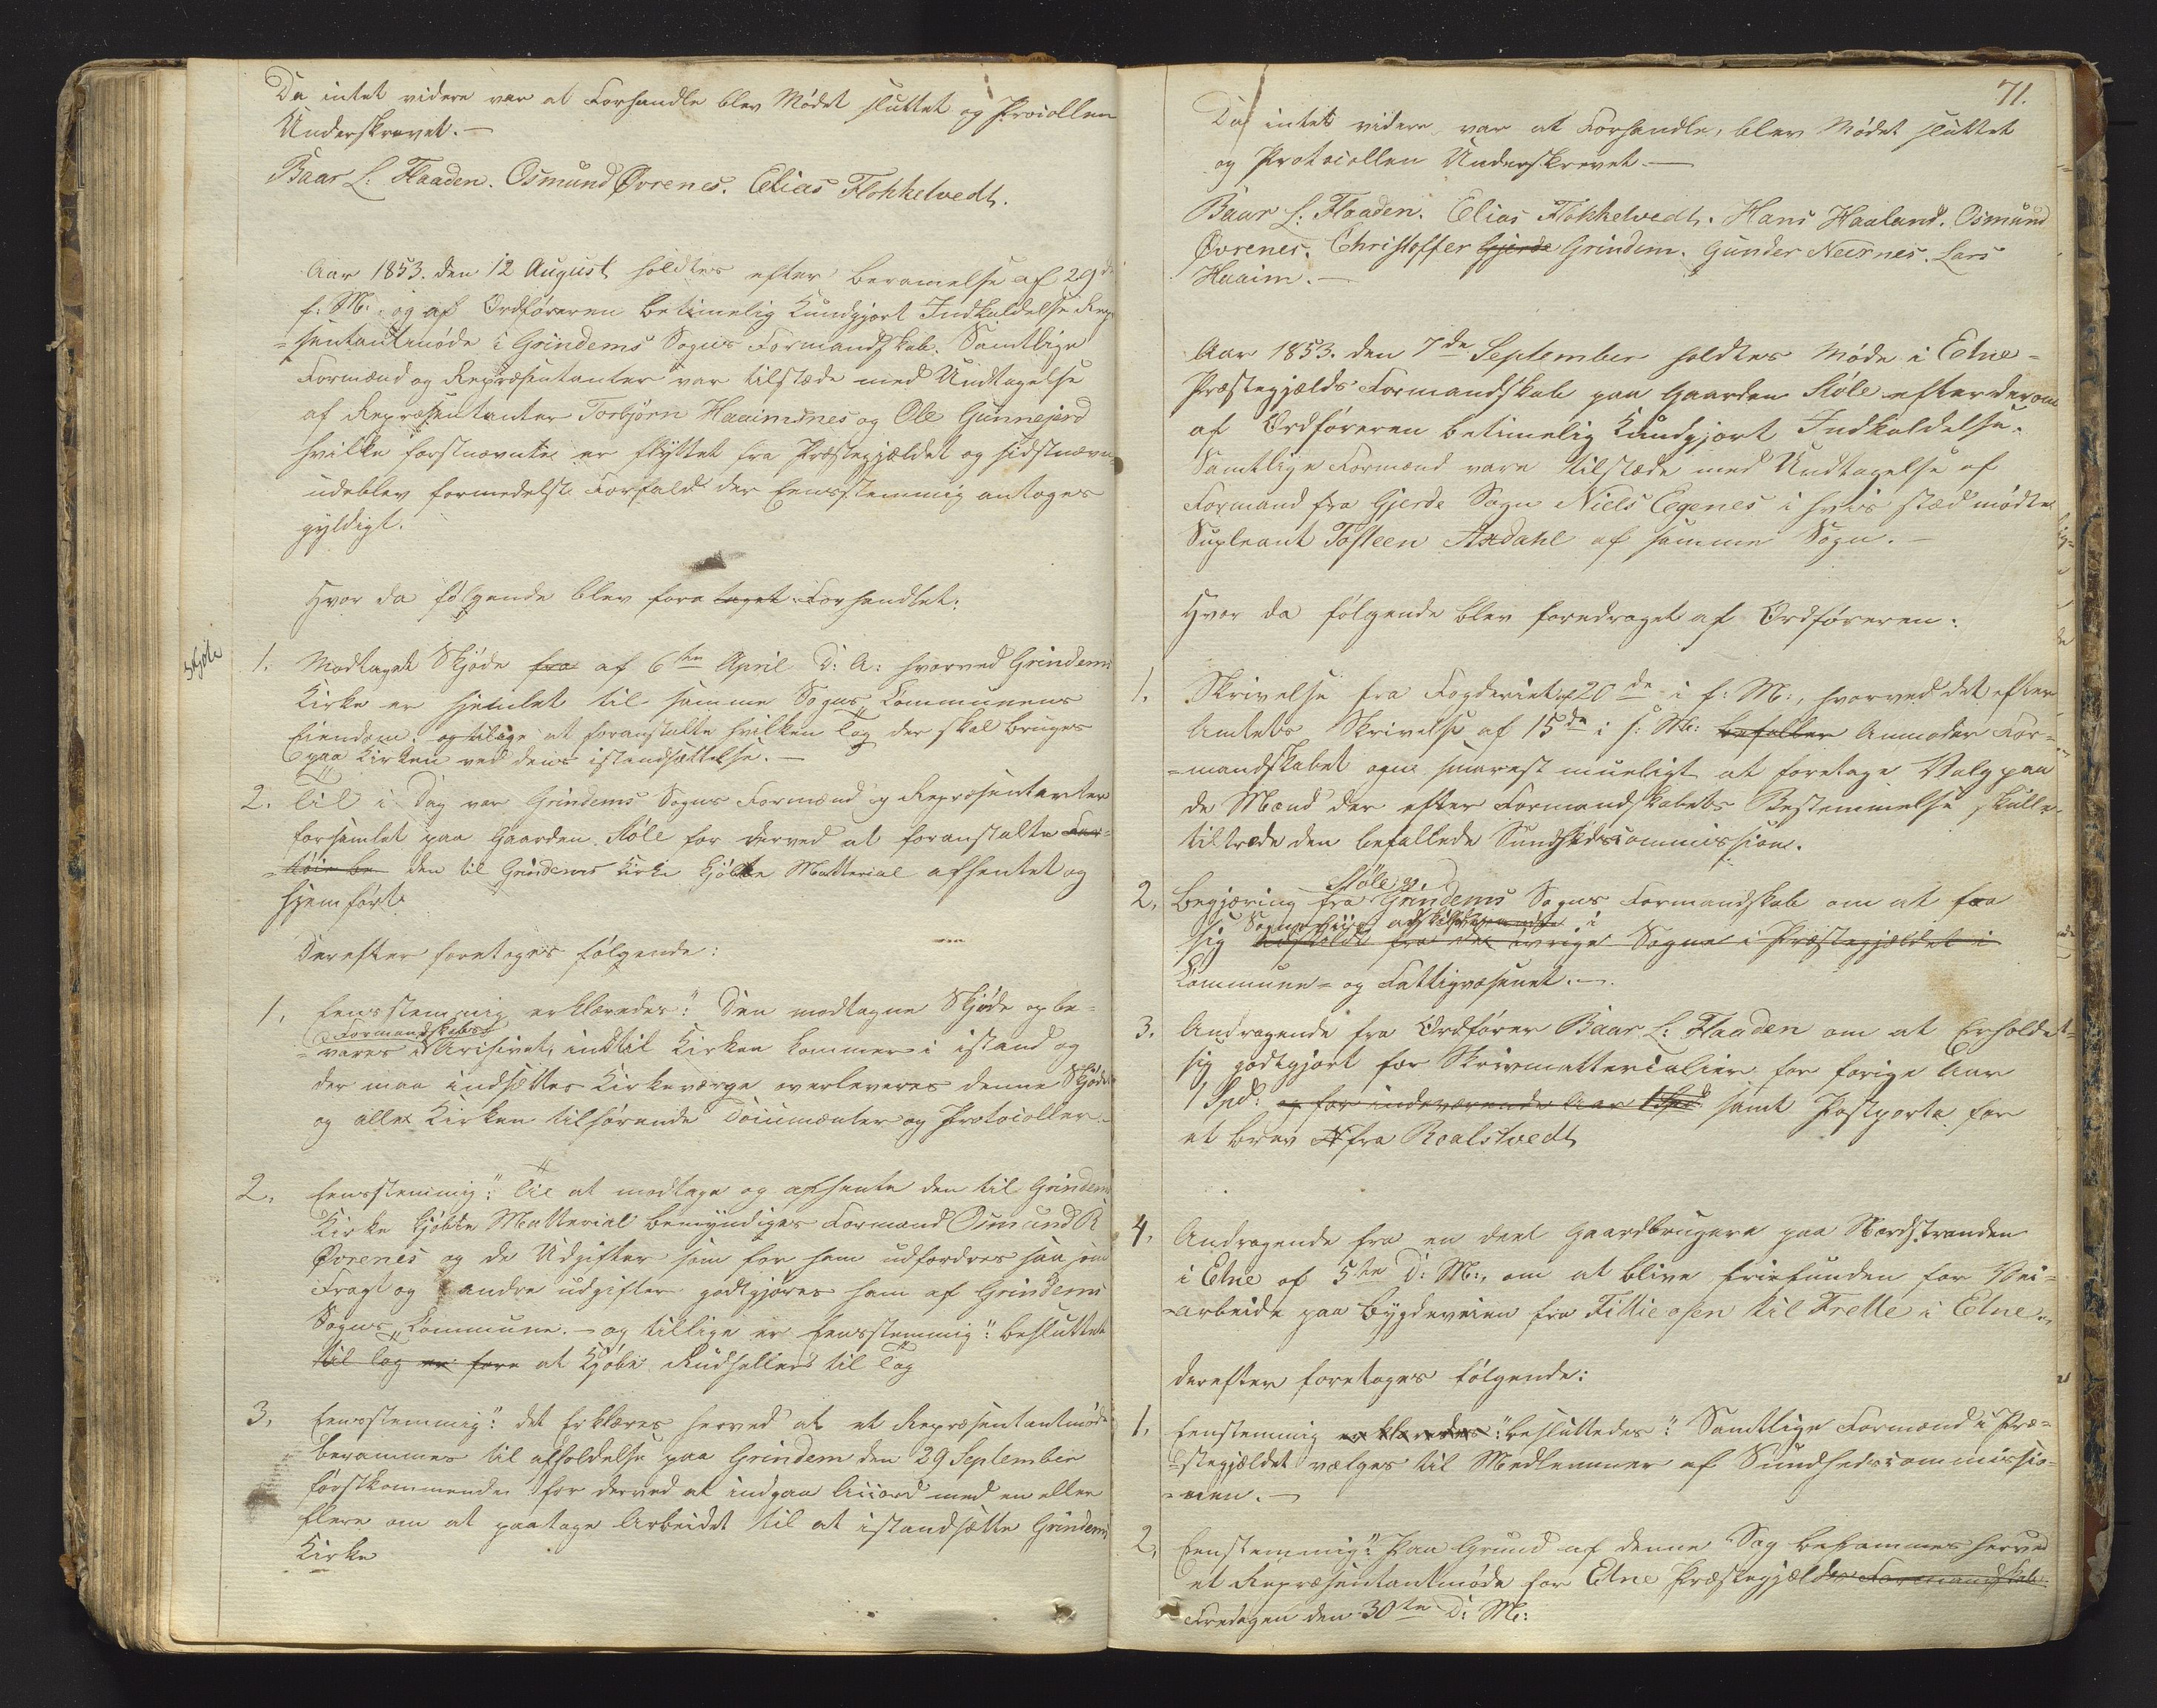 Da intet videre var at Forhandle blev Mødet sluttet og Procollen
Underskrevet. —
Baar L: Flaaden. Osmund Øvrenes. Elias Flokketvedt.
Aar 1853. den 12 August holdtes efter berammelse af 29de
f: M: og af Ordføreren betimelig Kundgjort Indkaldelse Repræ
=sentantmøde i Grindems Sogns Formandskab. Samtlige
Formænd og Repræsentanter var tilstæde med Undtagelse
af Repræsentanter Torbjørn Haaimsnes og Ole Gunnejord
hvilke førstnævnte er flyttet fra Præstegjældet og sidstnævn
udeblev formedelst Forfald der Eensstemmig antoges
gyldigt.
Hvor da følgende blev fore taget Forhandlet:
Skjøte
1. Modtaget Skjøde fra af 6te April d: A: hvorved Grindems
Kirke er hjemlet til samme Sogns Communens
Eiendom. og tilige at foranstalte hvilken Tag der skal bruges
paa Kirken ved dens istandsættelse. —
2. Til i Dag var Grindems Sogns Formænd og Repræsentanter
forsamlet paa Gaarden Støle for derved at foranstalte
den til Grindems Kirke kjøbte Matterial afhentet og
hjemført.
Derefter foretoges følgende:
1, Eensstemmig erklæredes: Den modtagne Skjøde opbe=
Formandskabs
=vares i Archivet, indtil Kirken kommer i istand og
der maa indsættes Kirkeværge overleveres denne Skjøde
og aller Kirken tilhørende Documenter og Protocoller. —
2, Eensstemmig: Til at modtage og afhente den til Grindems
Kirke kjøbte Matterial bemyndiges Formand Osmund R
Øvrenes og de Udgifter som for ham udfordres saa som
Fragt og andre udgifter godtgjøres ham af Grindems
Sogns Commune. — og tillige er Eensstemmig: besluttet
til Tag er fore at Kjøbe Rudhellers til Tag
3, Eensstemmig: det Erklæres herved at et Repræsentantmøde
berammes til afholdelse paa Grindem den 29 September
førstkommende for derved at indgaa Accord med en eller
flere om at paatage Arbeidet til at istandsætte Grindems
Kirke
71.
Da intet videre var at Forhandle, blev Mødet sluttet
og Protocollen Underskrevet —
Baar L: Flaaden. Elias Flokketvedt. Hans Haaland. Osmund
Øvrenes. Christoffer Gjerde Grindem. Gunder Neernes. Lars
Haaim. —
Aar 1853. den 7de September holdtes Møde i Etne=
Præstegjælds Formandskab paa Gaarden Støle efter derom
af Ordføreren betimelig Kundgjort Indkaldelse.
Samtlige Formænd vare tilstæde med Undtagelse af
Formand fra Gjerde Sogn Niels Egenes i hvis stæd mødte
Supleant Tosteen Axdahl af samme Sogn. —
Hvor da følgende blev foredraget af Ordføreren:
1. Skrivelse fra Fogderiet af 20de i f: M:, hvorved det efter
Amtets Skrivelse af 15de i f: M: befaller Anmoder For=
=mandskabet ogsne snarest mueligt at foretage Valg paa
de Mænd der efter Formandskabets Bestemmelse skulle
tiltræde den befallede Sundhedscommission.
Støle og
2, Begjæring fra Grindems Sogns Formandskab om at faa
Sognevise adskildt i
sig adskildt fra det øvrige Sogne i Præstegjældet i
Commune= og Fattigvæsenet. —
3. Andragende fra Ordfører Baar L: Flaaden om at Erholdet=
sig godtgjort for Skrivmatterialier for forige Aar
1 Spd: og for indeværende Aar 1 Spd samt Postporto for
et brev fra Roalstvedt
4, Andragende fra en deel Gaardbrugere paa Nordstranden
i Etne af 5te d: M:, om at blive friefunden for Vei=
=arbeide paa Bygdeveien fra Fittieosen til Frette i Etne. —
derefter foretoges følgende:
1, Eenstemmig erklæredes: besluttedes: Samtlige Formænd i Præ=
=stegjældet vælges til Medlemmer af Sundhedscommissio=
=nen. —
2, Eenstemmig: Paa Grund af denne Sag berammes herved
et Repræsentantmøde for Etne Præstegjælds Formandskab
Fredagen den 30te d: M: